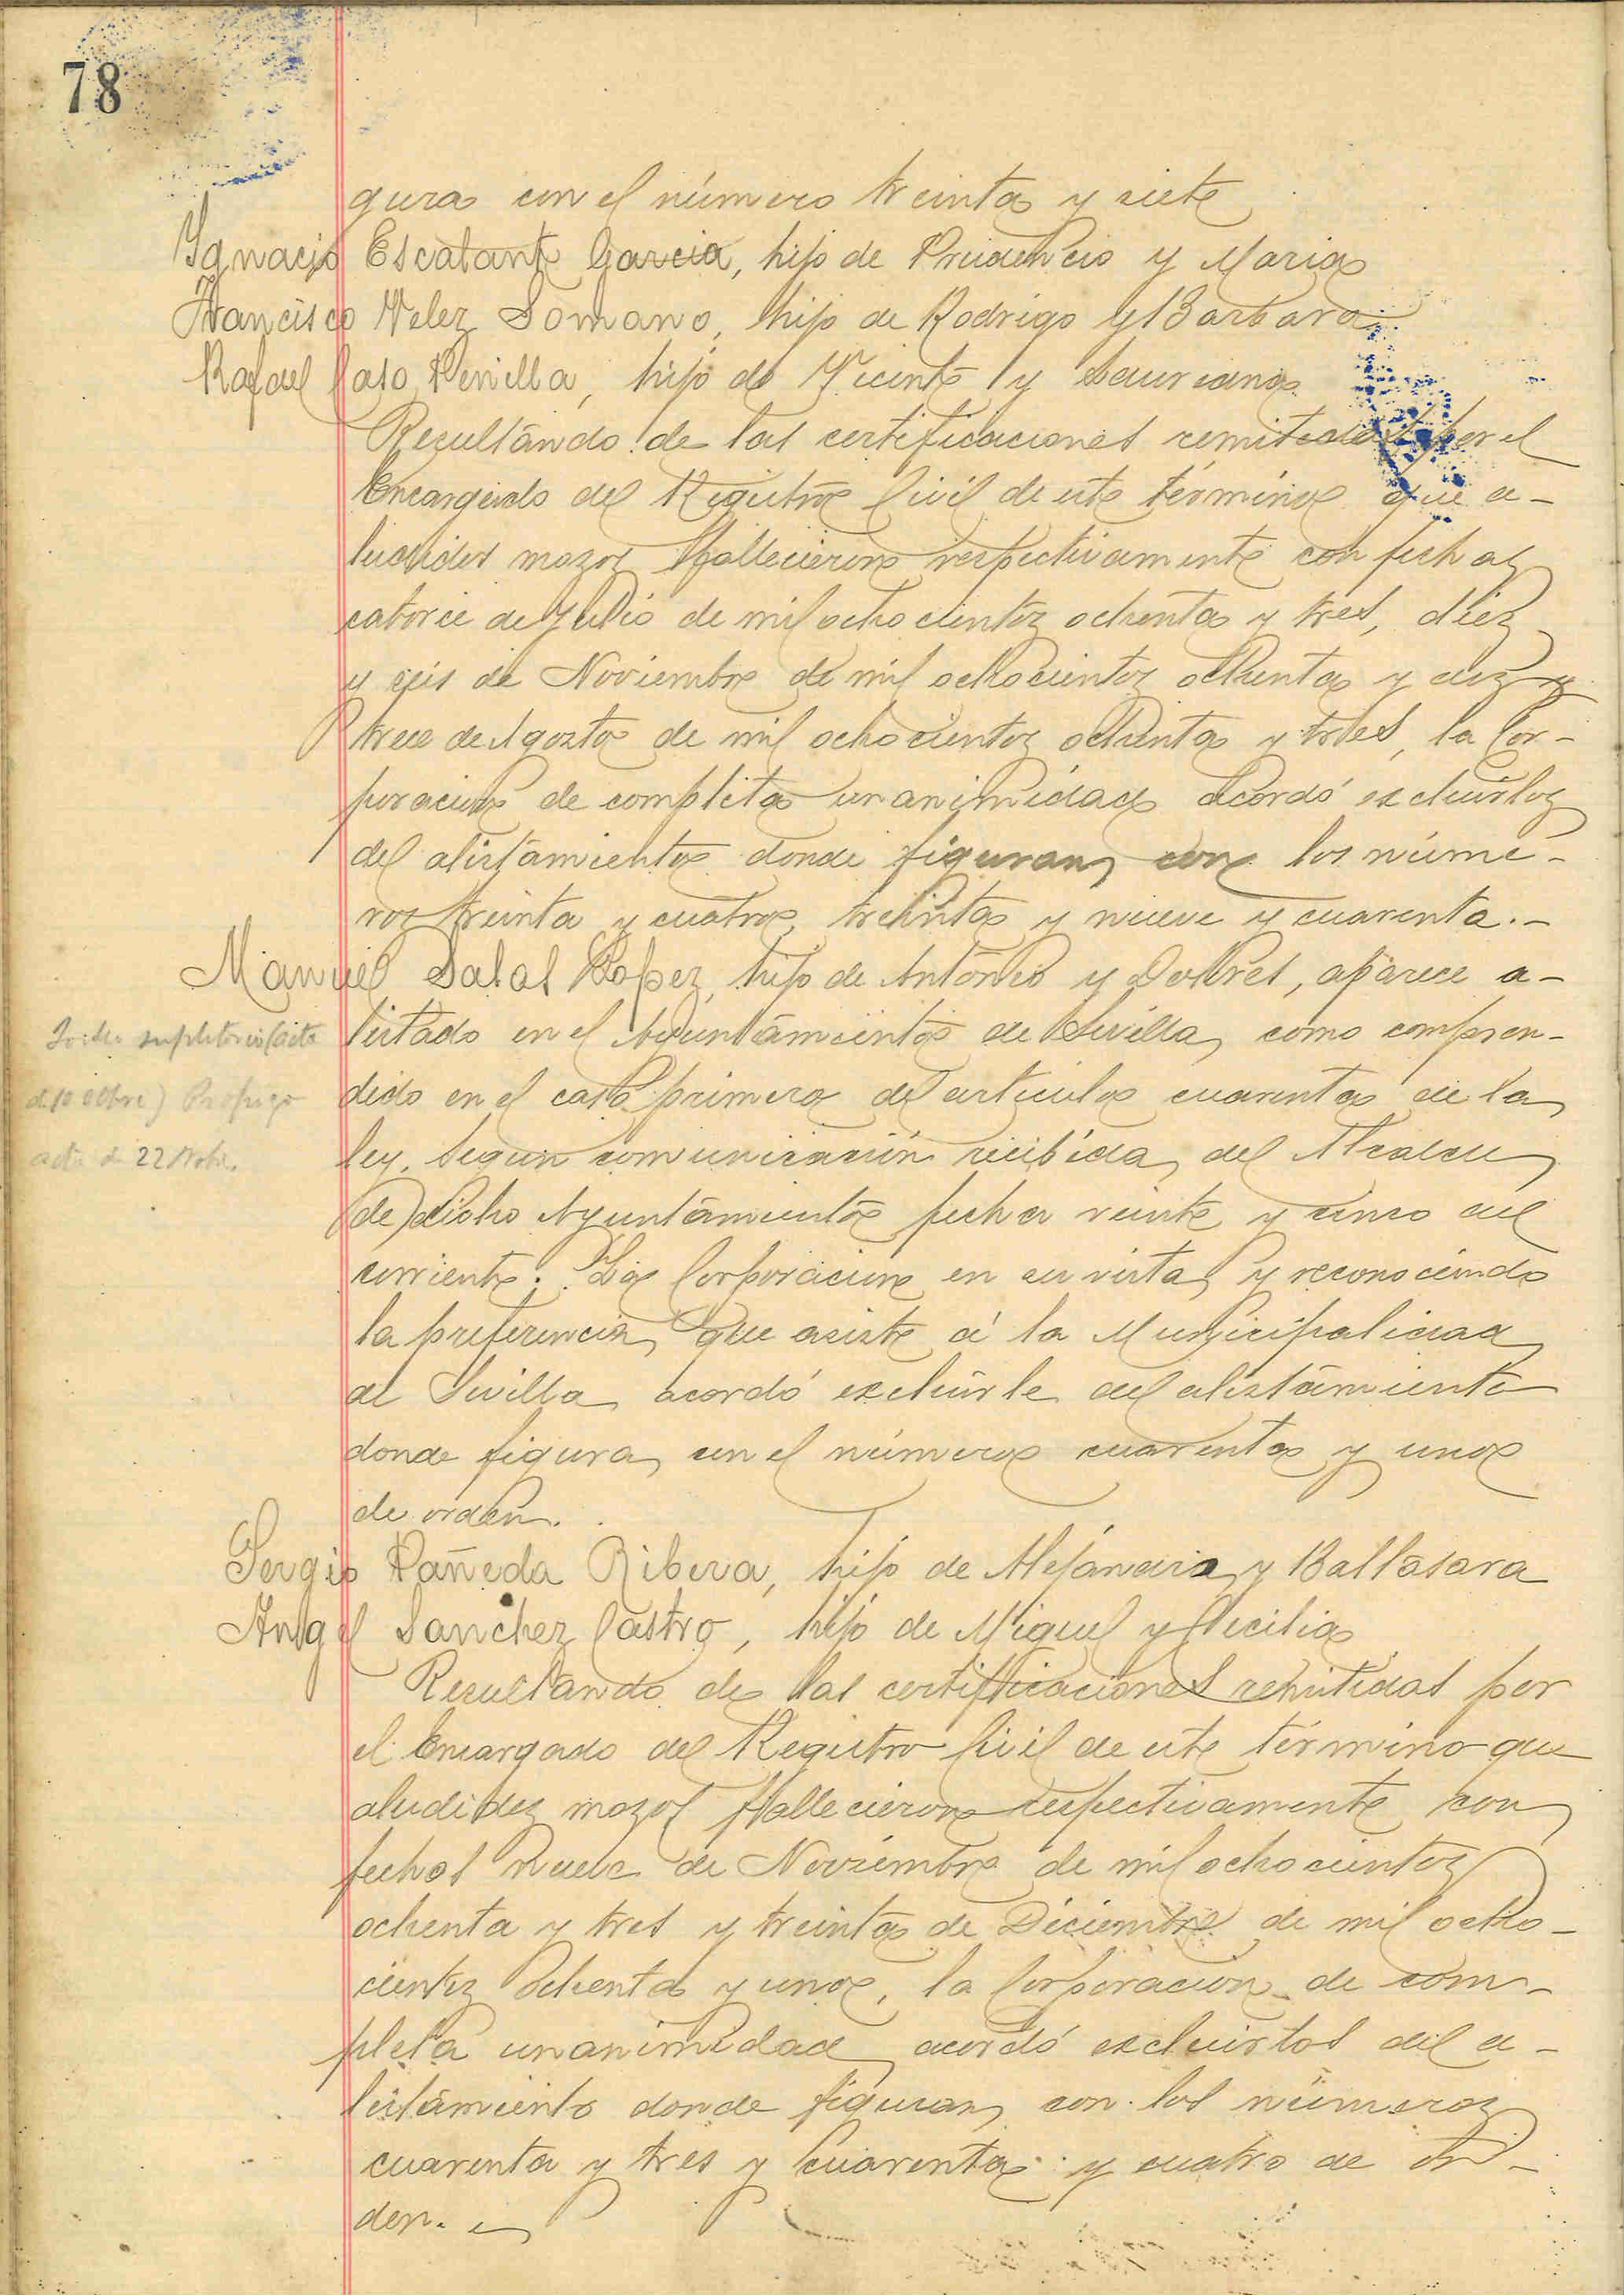 78
gura con el número treinta y siete
Ygnacio Escalante Garcia, hijo de Prudencio y Maria
Francisco Velez Somano, hijo de Rodrigo y Barbara
Rafael Caso Penilla, hijo de Vicente y Lauriana
Resultando de las certificaciones remitidas por el
Encargado del Registro Civil de este término que a-
ludidos mozos fallecieron respectivamente con fechas
catorce de Julio de mil ochocientos ochenta y tres, diez
y seis de Noviembre de mil ochocientos ochenta y dos y
trece de Agosto de mil ochocientos ochenta y tres, la Cor-
poracion de completa unanimidad acordó excluirlos
del alistamiento donde figuran con los núme-
ros treinta y cuatro, treinta y nueve y cuarenta.-
Manuel Salas Lopez, hijo de Antonio y Dolores, aparece a-
listado en el Ayuntamiento de Sevilla, como compren-
dido en el caso primero del articulo cuarenta de la
ley, segun comunicación recibida del Alcalde
de dicho Ayuntamiento fecha veinte y cinco del
corriente. La Corporacion en su vista y reconociendo
la preferencia que asiste á la Municipalidad
de Sevilla acordó excluirle del alistamiento
donde figura con el número cuarenta y uno
de orden.
supletorio (acta
de 10 Octbre) Profugo
acta de 22 Nobe.
Sergio Pañeda Ribera, hijo de Alejandro y Baltasara
Angel Sanchez Castro, hijo de Miguel y Cecilia
Resultando de las certificaciones remitidas por
el Encargado del Registro Civil de este término que
aludidos mozos fallecieron respectivamente con
fechas nueve de Noviembre de mil ochocientos
ochenta y tres y treinta de Diciembre de mil ocho-
cientos ochenta y uno, la Corporacion de com-
pleta unanimidad acordó excluirlos del a-
listamiento donde figuran con los números
cuarenta y tres y cuarenta y cuatro de or-
den.